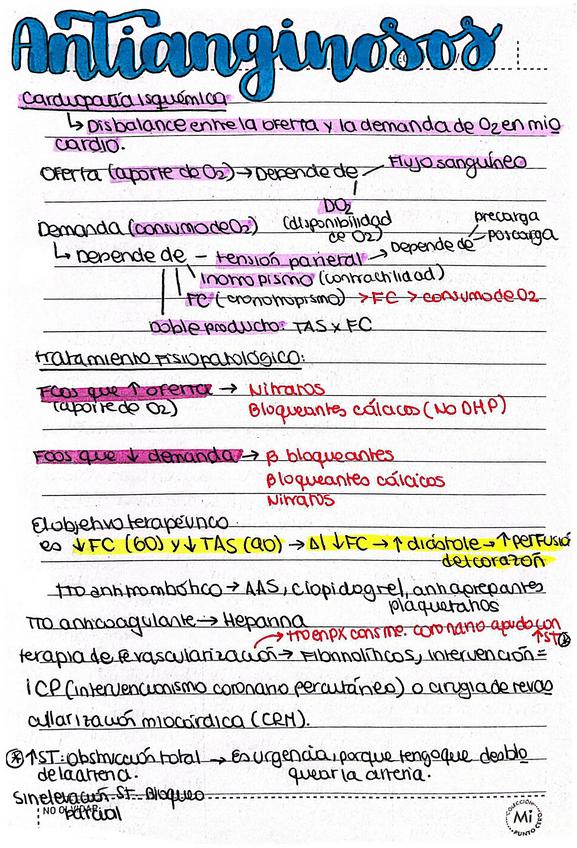 Antianginosos
Cardiopatía isquémica
↳ Disbalance entre la oferta y la demanda de O2 en mio
cardio.
Oferta (aporte de O2) → Depende de — Flujo sanguíneo
DO2
(disponibilidad
de O2)
Demanda (consumo de O2)
↳ Depende de — tensión parietal → Depende de — precarga
poscarga
Inotropismo (contractilidad)
FC (cronotropismo) >FC > consumo de O2
Doble producto: TAS x FC
Tratamiento Fisiopatológico:
Fcos que ↑ oferta → Nitratos
(aporte de O2) Bloqueantes cálcicos (NO DHP)
Fcos que ↓ demanda → β bloqueantes
Bloqueantes cálcicos
Nitratos
El objetivo terapéutico
es ↓FC (60) y ↓TAS (90) → Al ↓FC → ↑ diástole → ↑ perfusió
del corazón
tto antitrombótico → AAS, clopidogrel, antiagregantes
plaquetarios
TTO anticoagulante → Heparina
→ tto en PX con sme. coronario agudo con
↑ST(*)
terapia de revascularización → Fibrinolíticos, intervención =
ICP (intervencionismo coronario percutáneo) o cirugía de revas
cularización miocárdica (CRM).
(*) ↑ST: obstrucción total → Es urgencia, porque tengo que desblo
de la arteria. quear la arteria.
Sin elevación ST: Bloqueo
parcial
NO OLVIDAR:
COLECCIÓN
Mi
PUNTO CERO